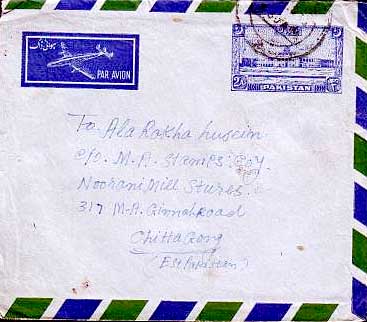 ہوائی ڈاک
PAR AVION
PAKISTAN
To, Ala Rakha huseim
c/o. M. A. Stamps. Coy.
Noorani Mill Stures.
317 M-A. Ginnah Road
Chittagong
(Est Pakistan)